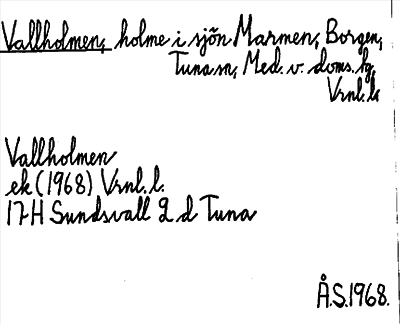 Vallholmen, holme i sjön Marmen, Borgen,
Tuna sn, Med. v. doms. fg,
Vrnl. l.
Vallholmen
ek (1968) Vrnl. l.
17H Sundsvall 2 d Tuna
Å.S. 1968.